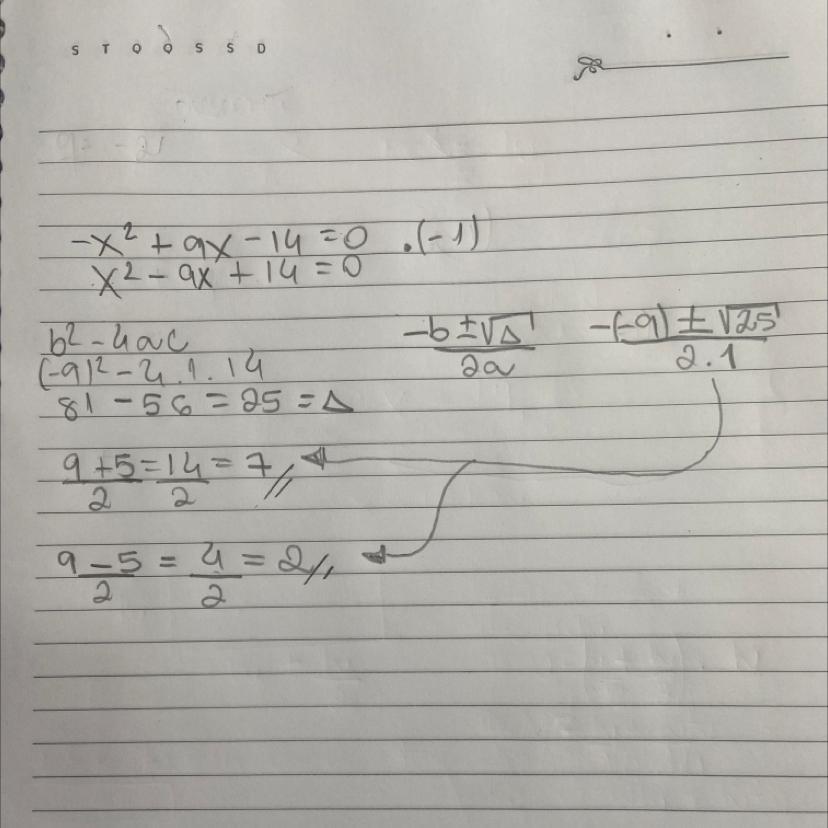 S T Q Q S S D
-x² + 9x - 14 = 0 .(-1)
x² - 9x + 14 = 0
b² - 4ac
(-9)² - 4.1.14
81 - 56 = 25 = Δ
-b ± √Δ / 2a
-(-9) ± √25 / 2.1
9 + 5 / 2 = 14 / 2 = 7 //
9 - 5 / 2 = 4 / 2 = 2 //